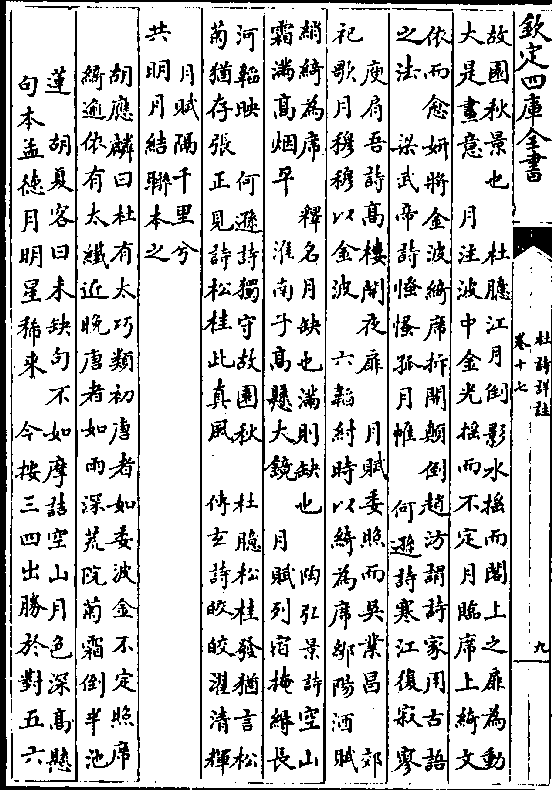 欽定四庫全書
杜詩詳註
卷十七
九
故園秋景也　杜臆江月倒影水搖而閣上之扉為動
大是畫意　月注波中金光搖而不定月臨席上綺文
依而愈妍將金波綺席拆開顛倒趙汸謂詩家用古語
之法　梁武帝詩慅慅孤月帷　何遜詩寒江復寂寥
庾肩吾詩高樓開夜扉　月賦委照而吳業昌　郊
祀歌月穆穆以金波　六韜紂時以綺為席鄒陽酒賦
綃綺為席　釋名月缺也滿則缺也　陶弘景詩空山
霜滿高烟平　淮南子高懸大鏡　月賦列宿掩縟長
河韜映　何遜詩獨守故園秋　杜臆松桂發猶言松
菊猶存張正見詩松桂此真風　傅玄詩皎皎濯清輝
月賦隔千里兮
共明月結聯本之
胡應麟曰杜有太巧類初唐者如委波金不定照席
綺逾依有太纖近晚唐者如雨深荒院菊霜倒半池
蓮　胡夏客曰未缺句不如摩詰空山月色深高懸
句本孟德月明星稀来　今按三四出勝於對五六